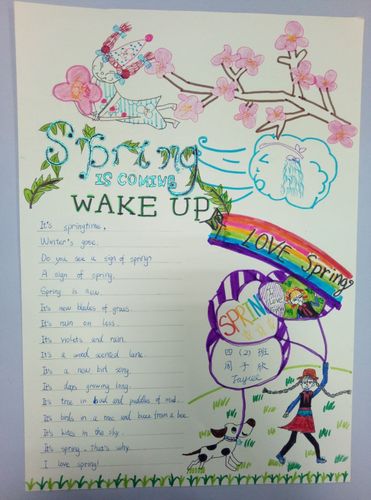 Spring
IS COMING
WAKE UP
I LOVE Spring
It's springtime.
Winter's gone.
Do you see a sign of spring?
A sign of spring.
Spring is new.
It's new blades of grass.
It's rain on
It's violets and rain.
It's a wood scented lane.
It's a new bird song.
It's days growing long.
It's tree in bud and puddles of mud.
It's birds in a tree and buzz from a bee.
It's kites in the sky.
It's spring. That's why
I love spring!
SPRING
四(2)班
周子欣
Jaycee